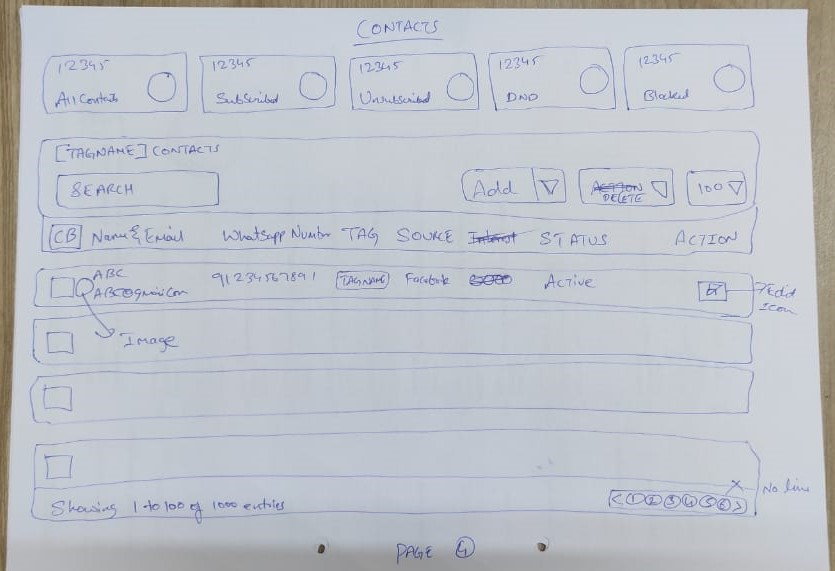 CONTACTS
12345
All Contacts
12345
Subscribed
12345
Unsubscribed
12345
DND
12345
Blocked
[TAGNAME] CONTACTS
SEARCH
Add
ACTION
DELETE
100
CB Name & Email Whatsapp Number TAG SOURCE Interest STATUS ACTION
ABC 91234567891 TAGNAME Facebook Active
Edit
Icon
Image
No line
Showing 1 to 100 of 1000 entries
< 1 2 3 4 5 6 >
PAGE 4